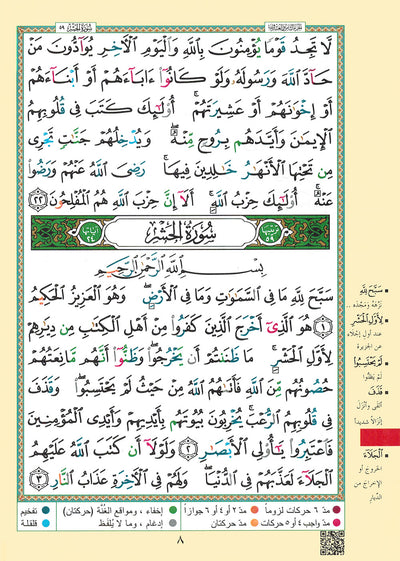 سُورَةُ الحَشْرِ ٥٩
لَّا تَجِدُ قَوْمًا يُؤْمِنُونَ بِٱللَّهِ وَٱلْيَوْمِ ٱلْأَخِرِ يُوَآدُّونَ مَنْ
حَآدَّ ٱللَّهَ وَرَسُولَهُۥ وَلَوْ كَانُوٓا۟ ءَابَآءَهُمْ أَوْ أَبْنَآءَهُمْ
أَوْ إِخْوَٰنَهُمْ أَوْ عَشِيرَتَهُمْ ۚ أُو۟لَٰٓئِكَ كَتَبَ فِى قُلُوبِهِمُ
ٱلْإِيمَٰنَ وَأَيَّدَهُم بِرُوحٍ مِّنْهُ ۖ وَيُدْخِلُهُمْ جَنَّٰتٍ تَجْرِى
مِن تَحْتِهَا ٱلْأَنْهَٰرُ خَٰلِدِينَ فِيهَا ۚ رَضِىَ ٱللَّهُ عَنْهُمْ وَرَضُوا۟
عَنْهُ ۚ أُو۟لَٰٓئِكَ حِزْبُ ٱللَّهِ ۚ أَلَآ إِنَّ حِزْبَ ٱللَّهِ هُمُ ٱلْمُفْلِحُونَ ٢٢
ترتيبها ٥٩ سُورَةُ الحَشْرِ آياتها ٢٤
بِسْمِ ٱللَّهِ ٱلرَّحْمَٰنِ ٱلرَّحِيمِ
سَبَّحَ لِلَّهِ مَا فِى ٱلسَّمَٰوَٰتِ وَمَا فِى ٱلْأَرْضِ ۖ وَهُوَ ٱلْعَزِيزُ ٱلْحَكِيمُ
١ هُوَ ٱلَّذِىٓ أَخْرَجَ ٱلَّذِينَ كَفَرُوا۟ مِنْ أَهْلِ ٱلْكِتَٰبِ مِن دِيَٰرِهِمْ
لِأَوَّلِ ٱلْحَشْرِ ۚ مَا ظَنَنتُمْ أَن يَخْرُجُوا۟ ۖ وَظَنُّوٓا۟ أَنَّهُم مَّانِعَتُهُمْ
حُصُونُهُم مِّنَ ٱللَّهِ فَأَتَىٰهُمُ ٱللَّهُ مِنْ حَيْثُ لَمْ يَحْتَسِبُوا۟ ۖ وَقَذَفَ
فِى قُلُوبِهِمُ ٱلرُّعْبَ ۚ يُخْرِبُونَ بُيُوتَهُم بِأَيْدِيهِمْ وَأَيْدِى ٱلْمُؤْمِنِينَ
فَٱعْتَبِرُوا۟ يَٰٓأُو۟لِى ٱلْأَبْصَٰرِ ٢ وَلَوْلَآ أَن كَتَبَ ٱللَّهُ عَلَيْهِمُ
ٱلْجَلَآءَ لَعَذَّبَهُمْ فِى ٱلدُّنْيَا ۖ وَلَهُمْ فِى ٱلْأَخِرَةِ عَذَابُ ٱلنَّارِ ٣
سَبَّحَ لِلَّهِ
نزّهه ومجّده ..
لِأَوَّلِ ٱلْحَشْرِ
عند أول إجلاء
عن الجزيرة
لَمْ يَحْتَسِبُوا
لم يظنّوا
قَذَفَ
ألقى وأنزل
إنزالًا شديدًا
ٱلْجَلَآءَ
الخروج أو
الإخراج من
الديار
مدّ ٦ حركات لزوماً مدّ ٢ أو ٤ أو ٦ جوازاً إخفاء، ومواقع الغُنَّة (حركتان) تفخيم
مدّ واجب ٤ أو ٥ حركات مدّ حركتان إدغام، وما لا يُلفَظ قلقلة
٨